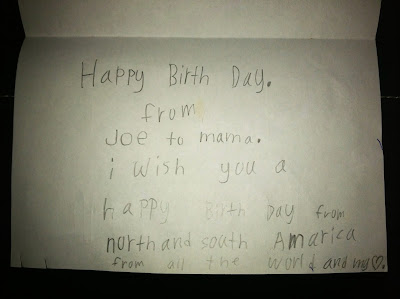 Happy Birth Day.
from
Joe to mama.
i wish you a
happy Birth Day from
north and south Amarica
from all the world and my ♡.